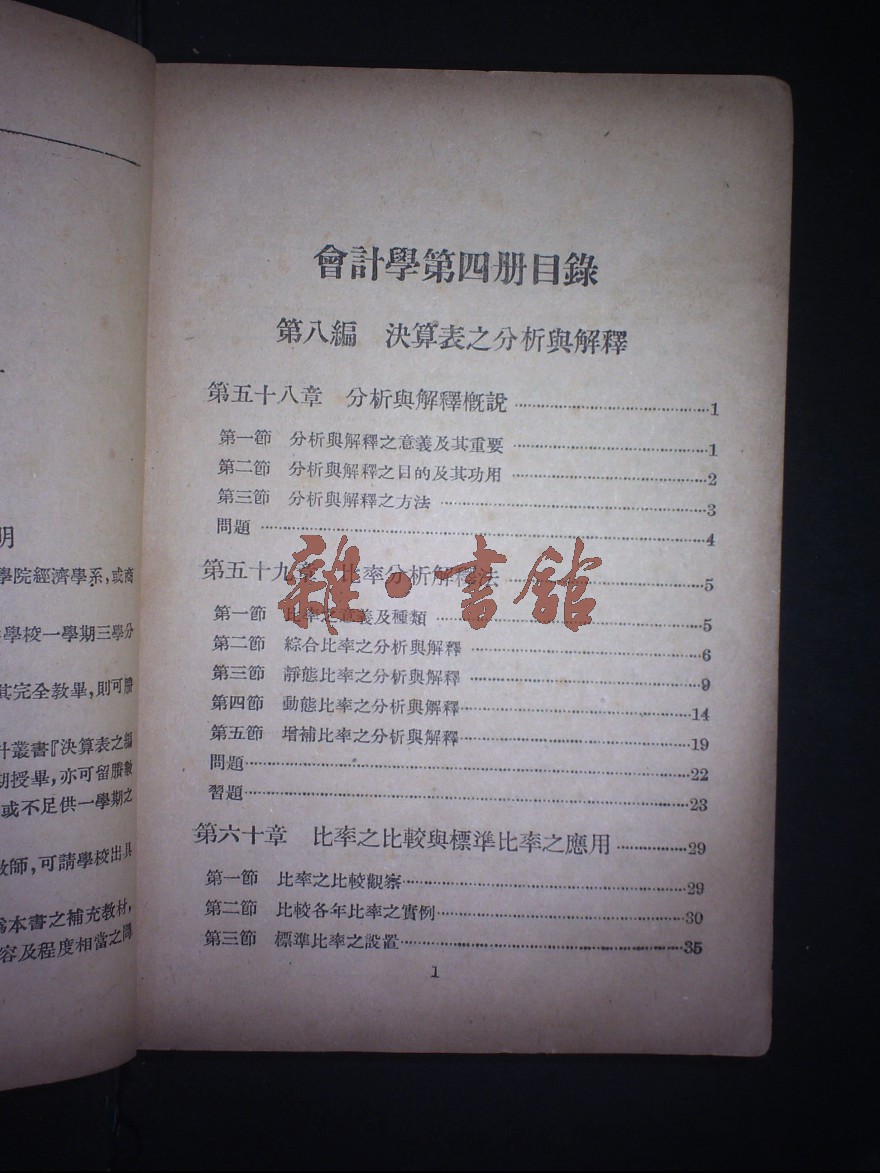 明
學院經濟學系,或商
學校一學期三學分
其完全教畢,則可酌
計叢書『決算表之編
期授畢,亦可留賸數
或不足供一學期之
教師,可請學校出具
爲本書之補充教材,
容及程度相當之問
會計學第四册目錄
第八編 決算表之分析與解釋
第五十八章 分析與解釋概說 1
第一節 分析與解釋之意義及其重要 1
第二節 分析與解釋之目的及其功用 2
第三節 分析與解釋之方法 3
問題 4
第五十九章 比率分析解釋法 5
第一節 比率之意義及種類 5
第二節 綜合比率之分析與解釋 6
第三節 靜態比率之分析與解釋 9
第四節 動態比率之分析與解釋 14
第五節 增補比率之分析與解釋 19
問題 22
習題 23
第六十章 比率之比較與標準比率之應用 29
第一節 比率之比較觀察 29
第二節 比較各年比率之實例 30
第三節 標準比率之設置 35
1
雜·書館